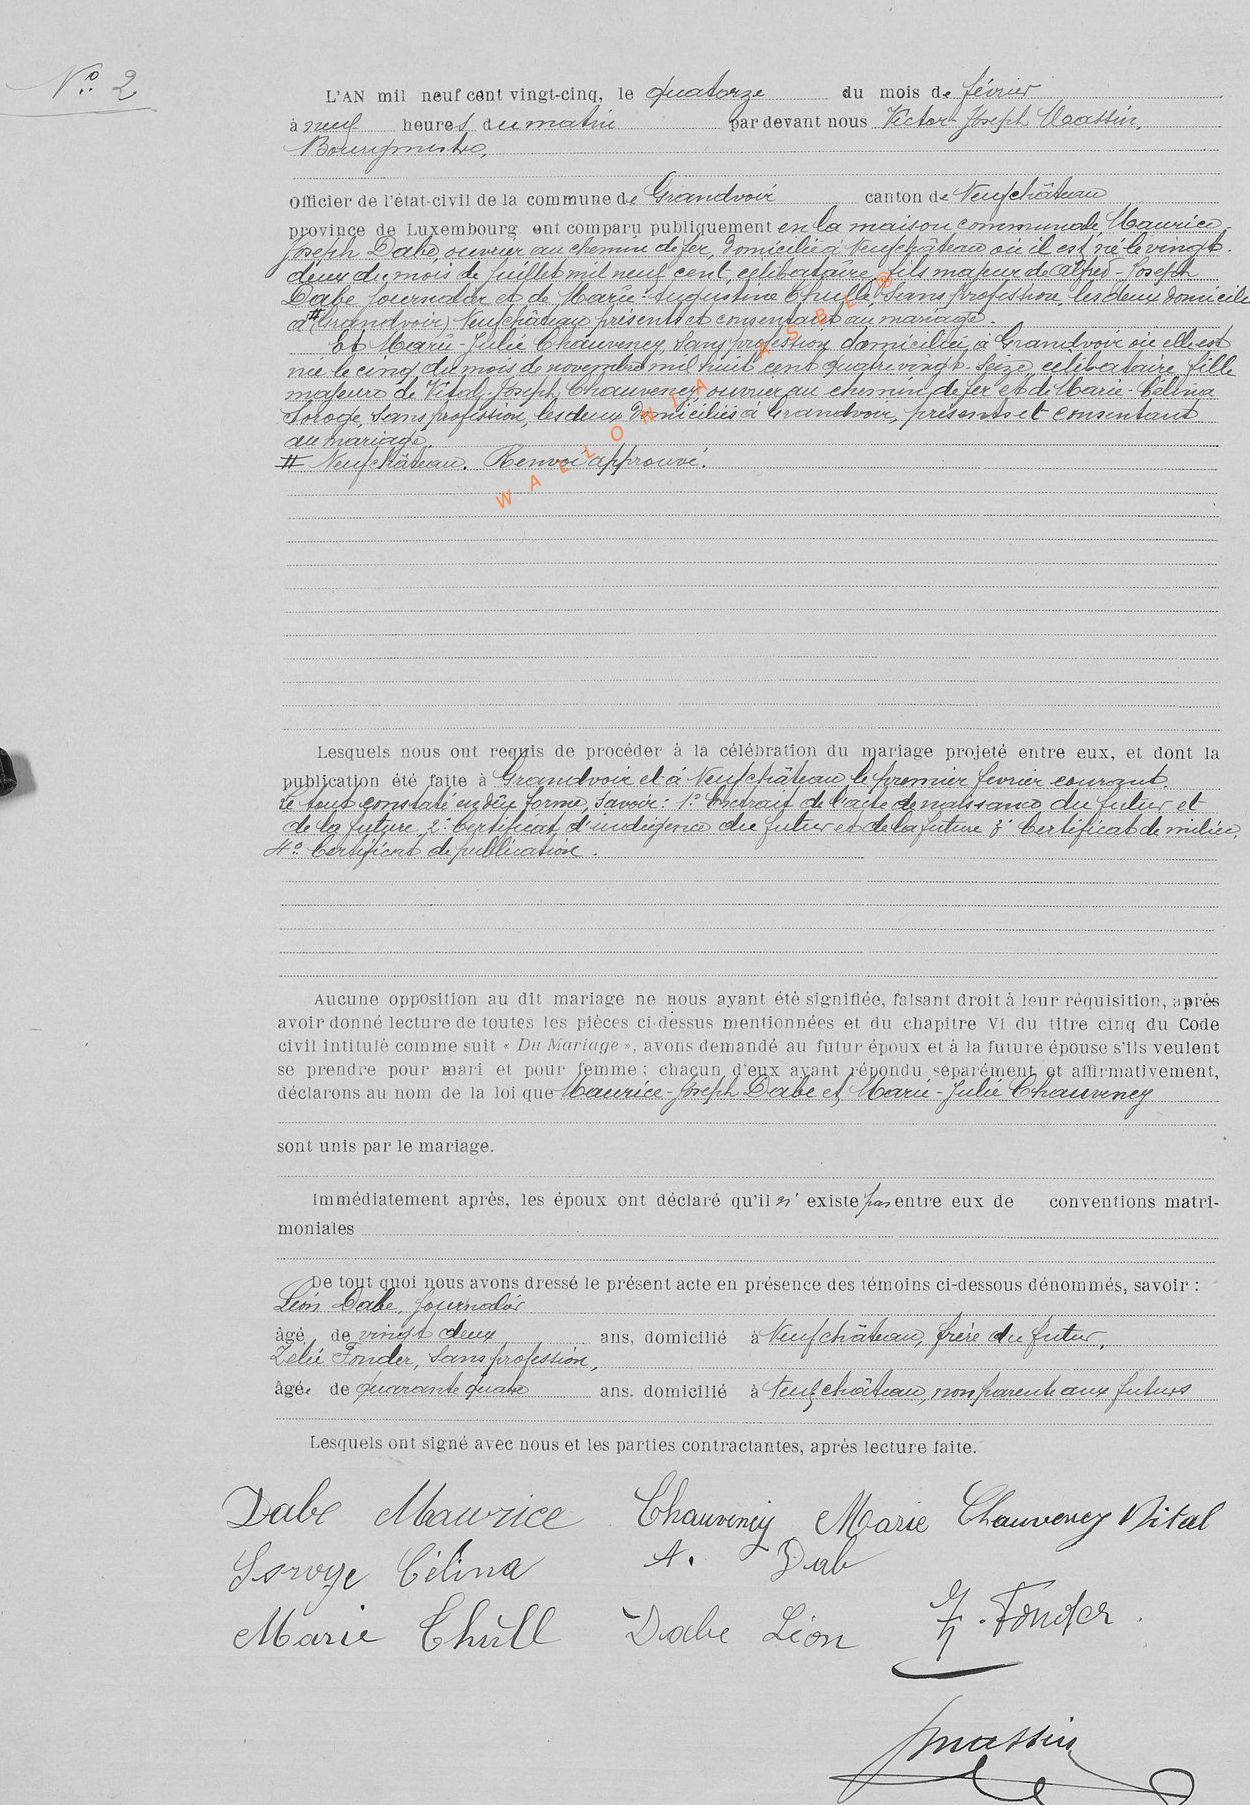 N° 2
L'AN mil neuf cent vingt-cinq, le quatorze du mois de février
à neuf heures du matin par devant nous Victor-Joseph Massin,
Bourgmestre,
Officier de l'état-civil de la commune de Grandvoir canton de Neufchâteau
province de Luxembourg ont comparu publiquement en la maison communale, Maurice-
Joseph Dabe, ouvrier au chemin de fer, domicilié à Neufchâteau où il est né le vingt-
deux du mois de juillet mil neuf cent, célibataire, fils majeur de Alfred-Joseph
Dabe journalier et de Marie-Augustine Thulle, sans profession, les deux domiciliés
à # (Grandvoir) Neufchâteau présents et consentant au mariage.
Et Marie-Julie Chauvency, sans profession domiciliée à Grandvoir où elle est
née le cinq du mois de novembre mil huit cent quatre vingt-seize, célibataire, fille
majeure de Vital-Joseph Chauvency ouvrier au chemin de fer et de Marie-Célina
Soroge, sans profession, les deux domiciliés à Grandvoir, présents et consentant
au mariage.
# Neufchâteau. Renvoi approuvé.
WALLONIA ASBL ®
Lesquels nous ont requis de procéder à la célébration du mariage projeté entre eux, et dont la
publication été faite à Grandvoir et à Neufchâteau le premier février courant.
Le tout constaté en due forme, savoir: 1° Extrait de l'acte de naissance du futur et
de la future 2° Certificat d'indigence du futur et de la future 3° Certificat de milice,
4° Certificat de publication.
Aucune opposition au dit mariage ne nous ayant été signifiée, faisant droit à leur réquisition, après
avoir donné lecture de toutes les pièces ci-dessus mentionnées et du chapitre VI du titre cinq du Code
civil intitulé comme suit « Du Mariage », avons demandé au futur époux et à la future épouse s'ils veulent
se prendre pour mari et pour femme ; chacun d'eux ayant répondu séparément et affirmativement,
déclarons au nom de la loi que Maurice-Joseph Dabe et Marie-Julie Chauvency
sont unis par le mariage.
Immédiatement après, les époux ont déclaré qu'il n' existe pas entre eux de conventions matri-
moniales
De tout quoi nous avons dressé le présent acte en présence des témoins ci-dessous dénommés, savoir :
Léon Dabe, journalier
âgé de vingt deux ans, domicilié à Neufchâteau, frère du futur,
Zélie Fonder, sans profession,
âgée de quarante quatre ans. domicilié à Neufchâteau, non parente aux futurs
Lesquels ont signé avec nous et les parties contractantes, après lecture faite.
Dabe Maurice Chauvency Marie Chauvency Vital
Soroge Célina A. Dab
Marie Thull Dabe Léon Z. Fonder.
Massin